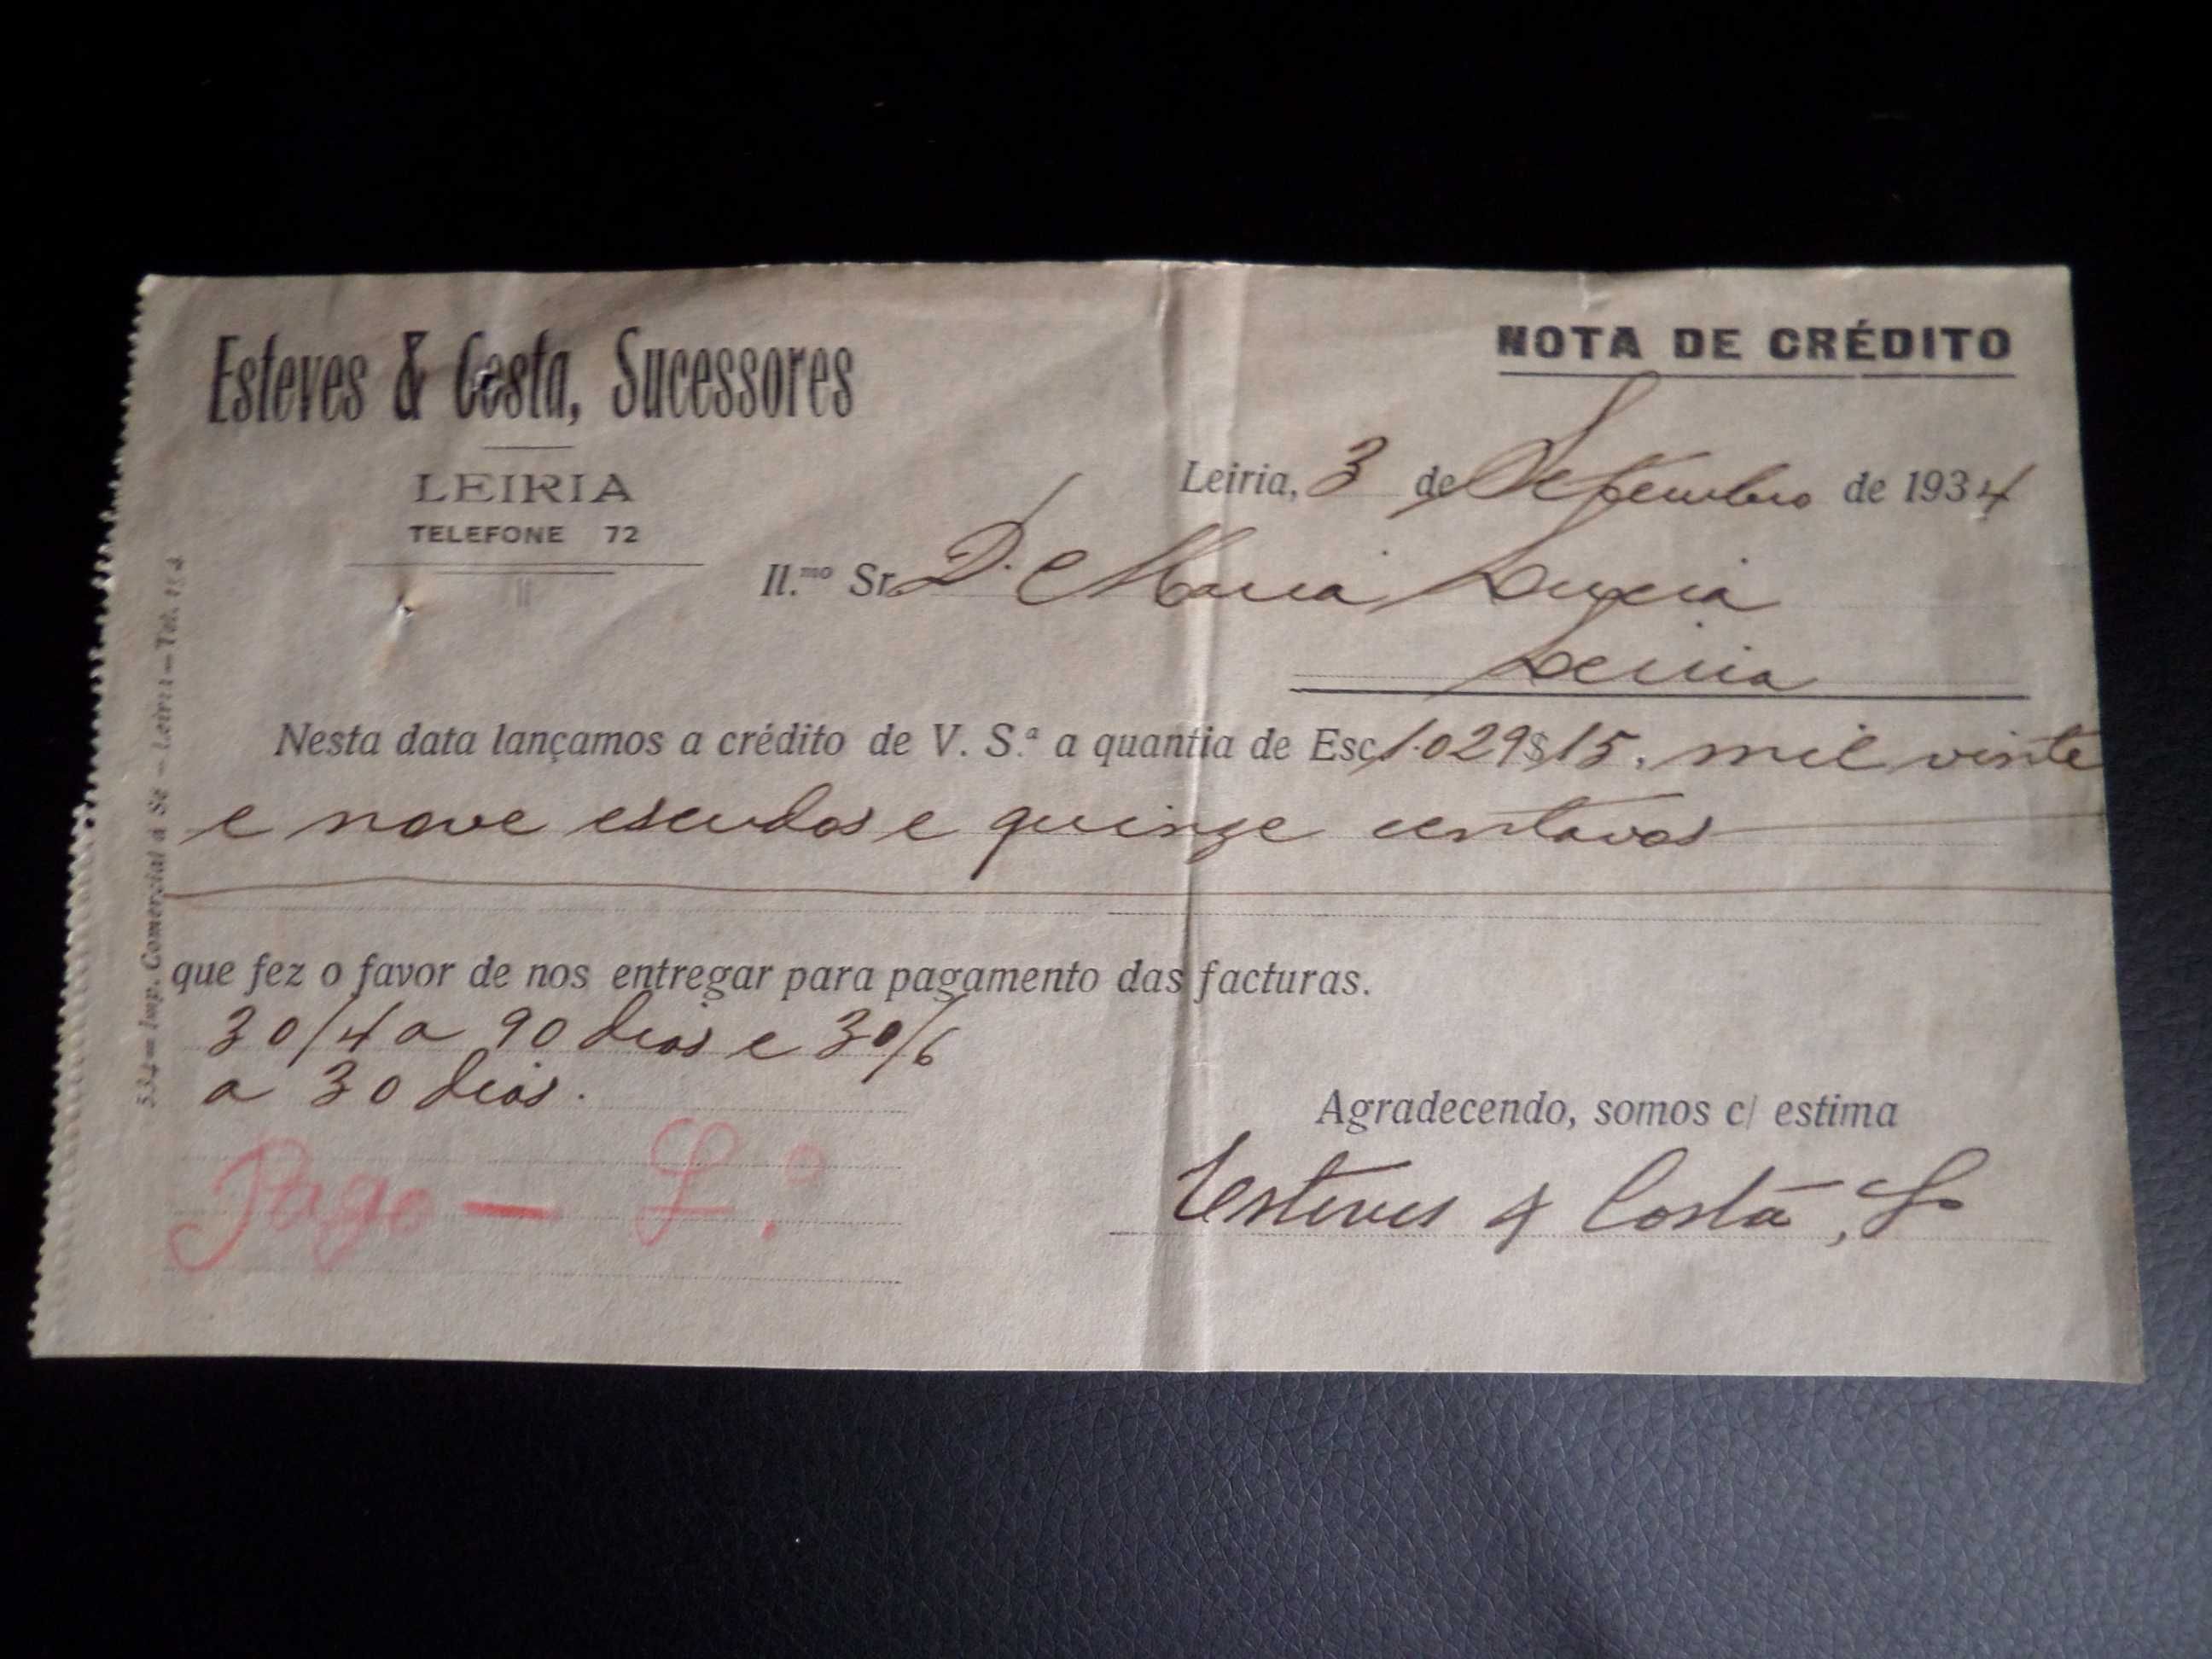 Esteves & Costa, Sucessores
LEIRIA
TELEFONE 72
NOTA DE CRÉDITO
Leiria, 3 de Setembro de 1934
Il.mo Sr. D. Maria Lucia
Leiria
Nesta data lançamos a crédito de V. S.ª a quantia de Esc. 1.029$15. mil vinte
e nove escudos e quinze centavos
que fez o favor de nos entregar para pagamento das facturas.
30/4 a 90 dias e 30/6
a 30 dias.
Pago —
Agradecendo, somos c/ estima
Esteves & Costa,
534 — Imp. Comercial á Sé — Leiria — Tel.